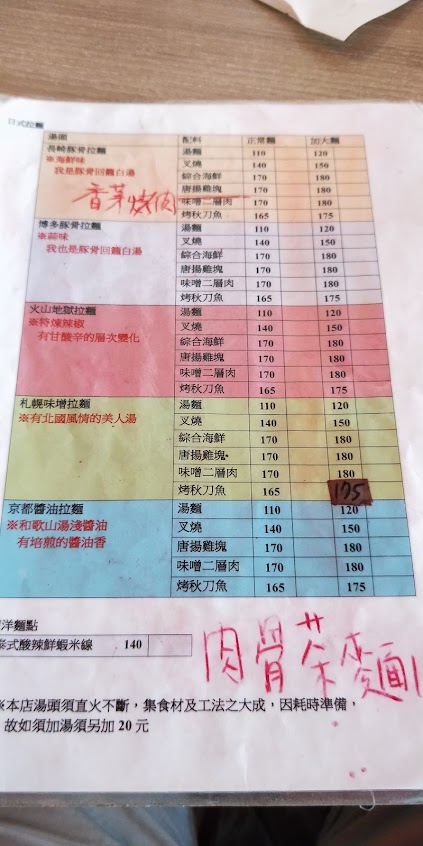 日式拉麵
湯頭 配料 正常麵 加大麵
長崎豚骨拉麵 湯麵 110 120
※海鮮味 叉燒 140 150
我是豚骨回籠白湯 綜合海鮮 170 180
唐揚雞塊 170 180
香菜燒肉
味噌二層肉 170 180
烤秋刀魚 165 175
博多豚骨拉麵 湯麵 110 120
※蒜味 叉燒 140 150
我也是豚骨回籠白湯 綜合海鮮 170 180
唐揚雞塊 170 180
味噌二層肉 170 180
烤秋刀魚 165 175
火山地獄拉麵 湯麵 110 120
※特煉辣椒 叉燒 140 150
有甘酸辛的層次變化 綜合海鮮 170 180
唐揚雞塊 170 180
味噌二層肉 170 180
烤秋刀魚 165 175
札幌味增拉麵 湯麵 110 120
※有北國風情的美人湯 叉燒 140 150
綜合海鮮 170 180
唐揚雞塊 170 180
味噌二層肉 170 180
烤秋刀魚 165 175
京都醬油拉麵 湯麵 110 120
※和歌山湯淺醬油 叉燒 140 150
有培煎的醬油香 唐揚雞塊 170 180
味噌二層肉 170 180
烤秋刀魚 165 175
洋麵點
泰式酸辣鮮蝦米線 140
肉骨茶麵
※本店湯頭須直火不斷，集食材及工法之大成，因耗時準備，
故如須加湯須另加 20 元